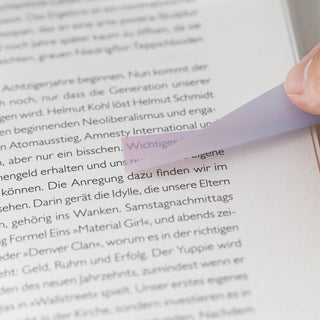 dass es an eine arte povera-Skulptur
d noch Jahre später zaum zu öffnen, da die
chten, grauen Niedrigflor-Teppichboden
Achtzigerjahre beginnen. Nun kommt der
h noch, nur dass die Generation unserer
gen wird. Helmut Kohl löst Helmut Schmidt
en beginnenden Neoliberalismus und enga-
n Atomausstieg, Amnesty International und
, aber nur ein bisschen. Wichtiger
hengeld erhalten und uns eigene
können. Die Anregung dazu finden wir im
sehen. Darin gerät die Idylle, die unsere Eltern
, gehörig ins Wanken. Samstagnachmittags
g Formel Eins »Material Girl«, und abends zei-
oder »Denver Clan«, worum es in der richtigen
eht: Geld, Ruhm und Erfolg. Der Yuppie wird
des neuen Jahrzehnts, zumindest wenn er
glas in »Wallstreet« spielt. Unser erstes eigenes
in der Kirche, sondern investieren es in